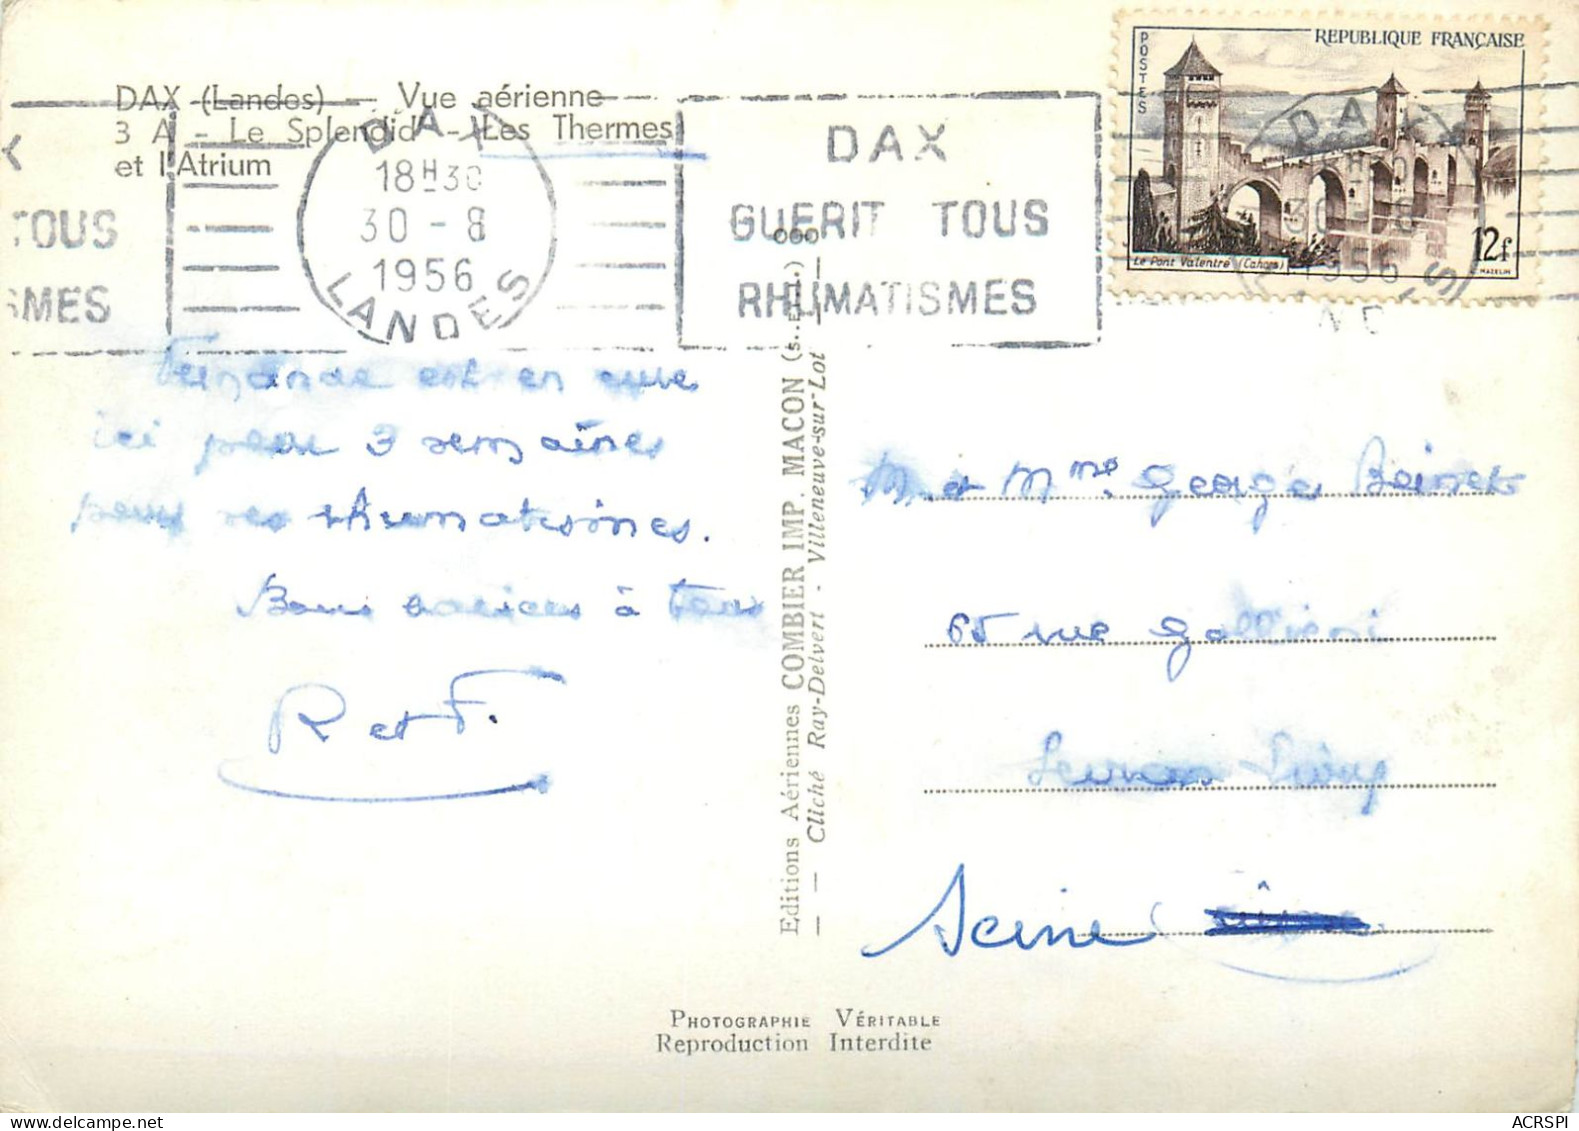 DAX (Landes) — Vue aérienne
3 A - Le Splendid - Les Thermes
et l'Atrium
X
TOUS
SMES
DAX
18H30
30 - 8
1956
LANDES
DAX
GUERIT TOUS
RHUMATISMES
POSTES
REPUBLIQUE FRANÇAISE
Le Pont Valentré (Cahors)
12f
MAZELIN
Fernande est en cure
ici pour 3 semaines
pour ses rhumatismes.
Bons baisers à tous
R et F.
Editions Aériennes COMBIER IMP. MACON (S.-et-L.) ooo
— — Cliché Ray-Delvert - Villeneuve-sur-Lot — —
M et Mme Georges
65 rue Gallieni
Seine
PHOTOGRAPHIE VÉRITABLE
Reproduction Interdite
ACRSPI